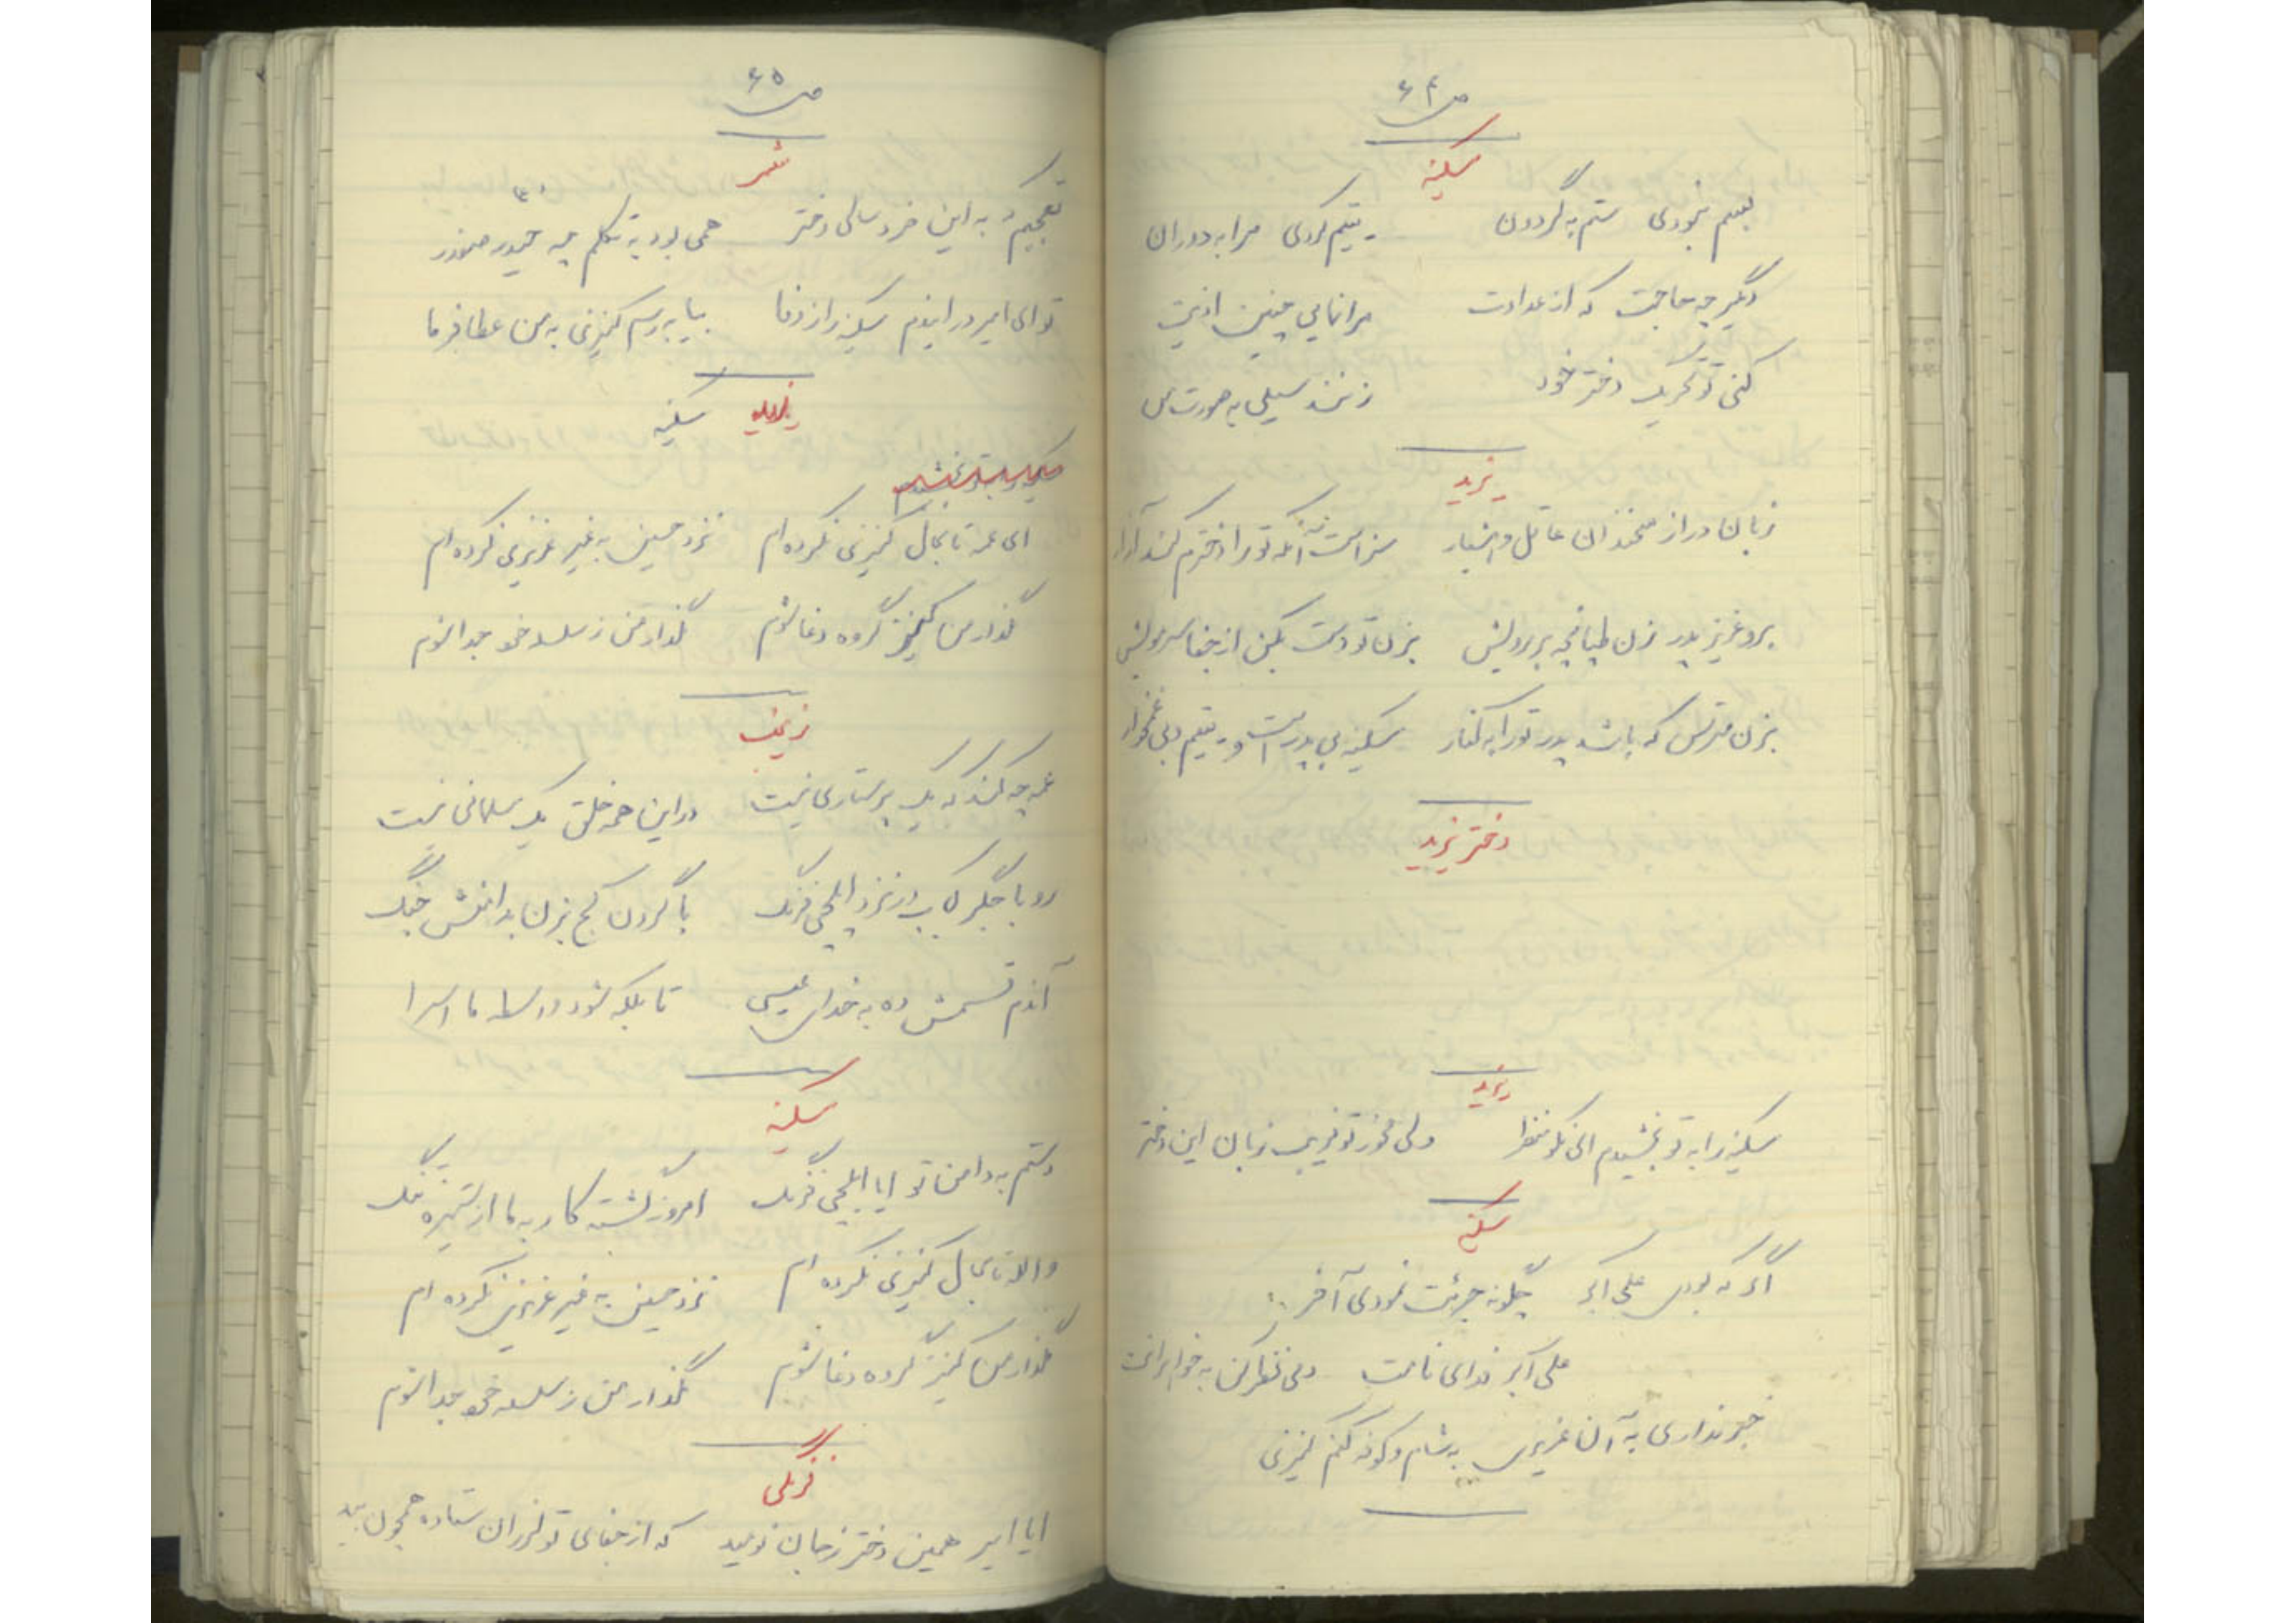 ص ۶۴
سکینه
بسم نمودی ستم به گردون یتیم کردی مرا به دوران
دگر چه حاجت که از عداوت مرا نمایی چنین اذیت
کنی تو تحریک دختر خود زنند سیلی به صورت من
یزید
زبان دراز سخندان عاقل و هشیار سزاست آنکه تو را دخترم کند آزار
برو عزیز پدر زن طپانچه بر رویش بزن تو دست بکن از جفا سر مویش
بزن مترس که باشد پدر تو را به کنار سکینه بی پدر است و یتیم و بی غمخوار
دختر یزید
یزید
سکینه را به تو بخشیدم ای نکو منظر ولی مخور تو فریب زبان این دختر
سکینه
اگر که بودی علی اکبر چگونه جرئت نمودی آخر
علی اکبر فدای نامت دمی نظر کن به خواهرانت
خبر نداری به آن عزیزی به شام و کوفه کنم کنیزی
ص ۶۵
شمر
تعجبم که به این خردسالی دختر همی بود به تکلم چه حیدر صفدر
تو ای امیر در ایندم سکینه را ز وفا بیا به رسم کنیزی به من عطا فرما
یزید سکینه
ای عمه تا بحال کنیزی نکرده ام نزد حسین به غیر عزیزی نکرده ام
نگذار من کنیز گروه دغا شوم نگذار من ز سلسله خود جدا شوم
زینب
عمه چه کند که یک پرستاری نیست در این همه خلق یک مسلمانی نیست
رو با جگر کباب در نزد ایلچی فرنگ با گردن کج بزن به دامنش چنگ
آندم قسمش ده به خدای عیسی تا بلکه شود واسطه ما اسرا
سکینه
دستم به دامن تو ایا ایلچی فرنگ امروز گشته کار به ما از ستیزه تنگ
والله تا بحال کنیزی نکرده ام نزد حسین به غیر عزیزی نکرده ام
نگذار من کنیز گروه دغا شوم نگذار من ز سلسله خود جدا شوم
فرنگی
ایا امیر همین دختر ز جان نومید که از جفای تو لرزان ستاده همچون بید